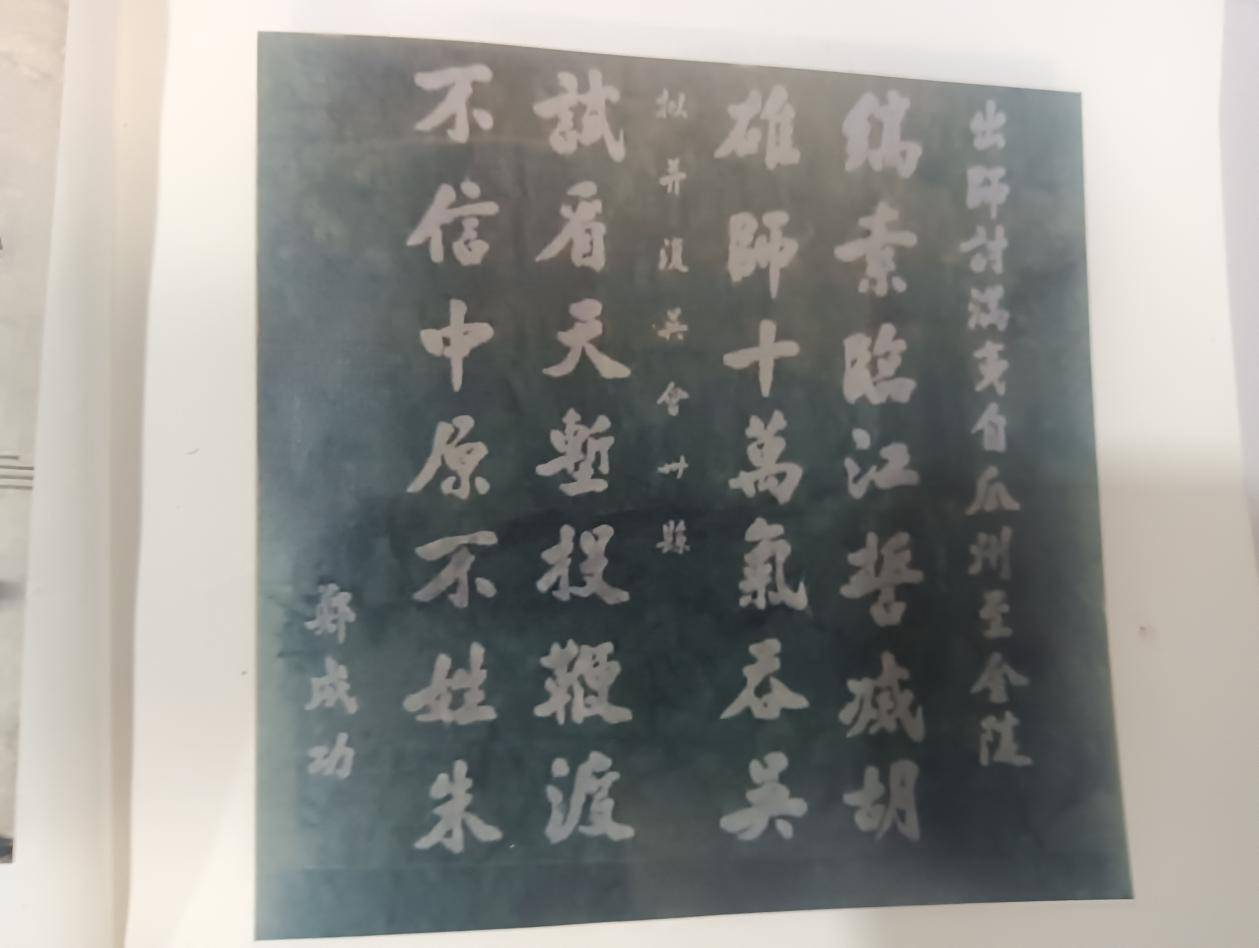 出師討滿夷自瓜州至金陵
縞素臨江誓滅胡
雄師十萬氣吞吳
拟并復吳會卅縣
試看天塹投鞭渡
不信中原不姓朱
鄭成功